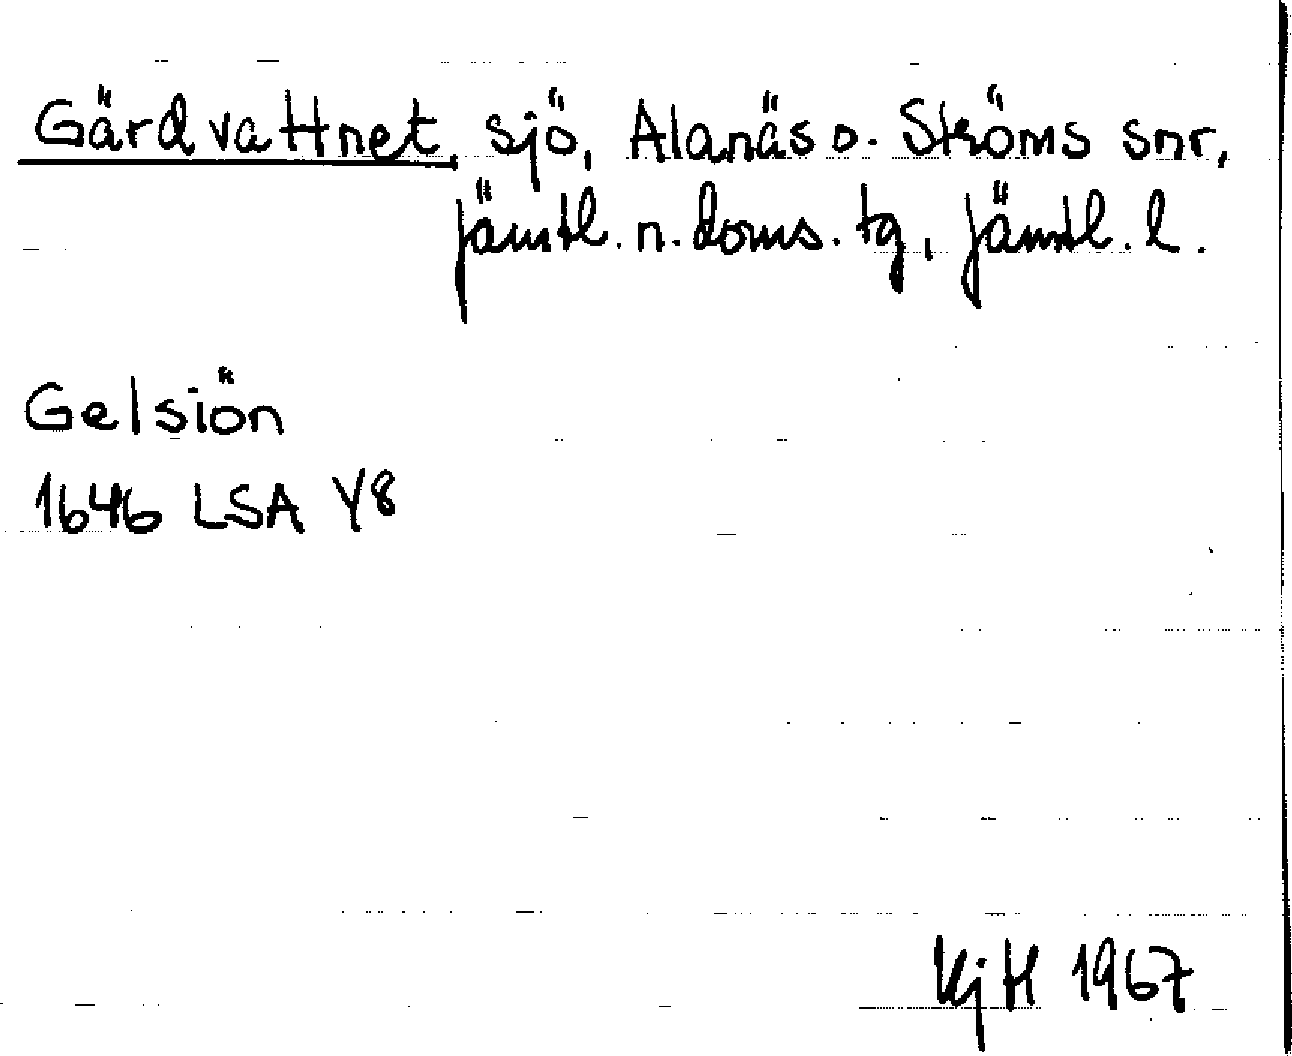 Gärdvattnet, sjö, Alanäs o. Ströms snr,
Jämtl. n. doms. tg, Jämtl. l.
Gelsiön
1646 LSA Y8
KjH 1967